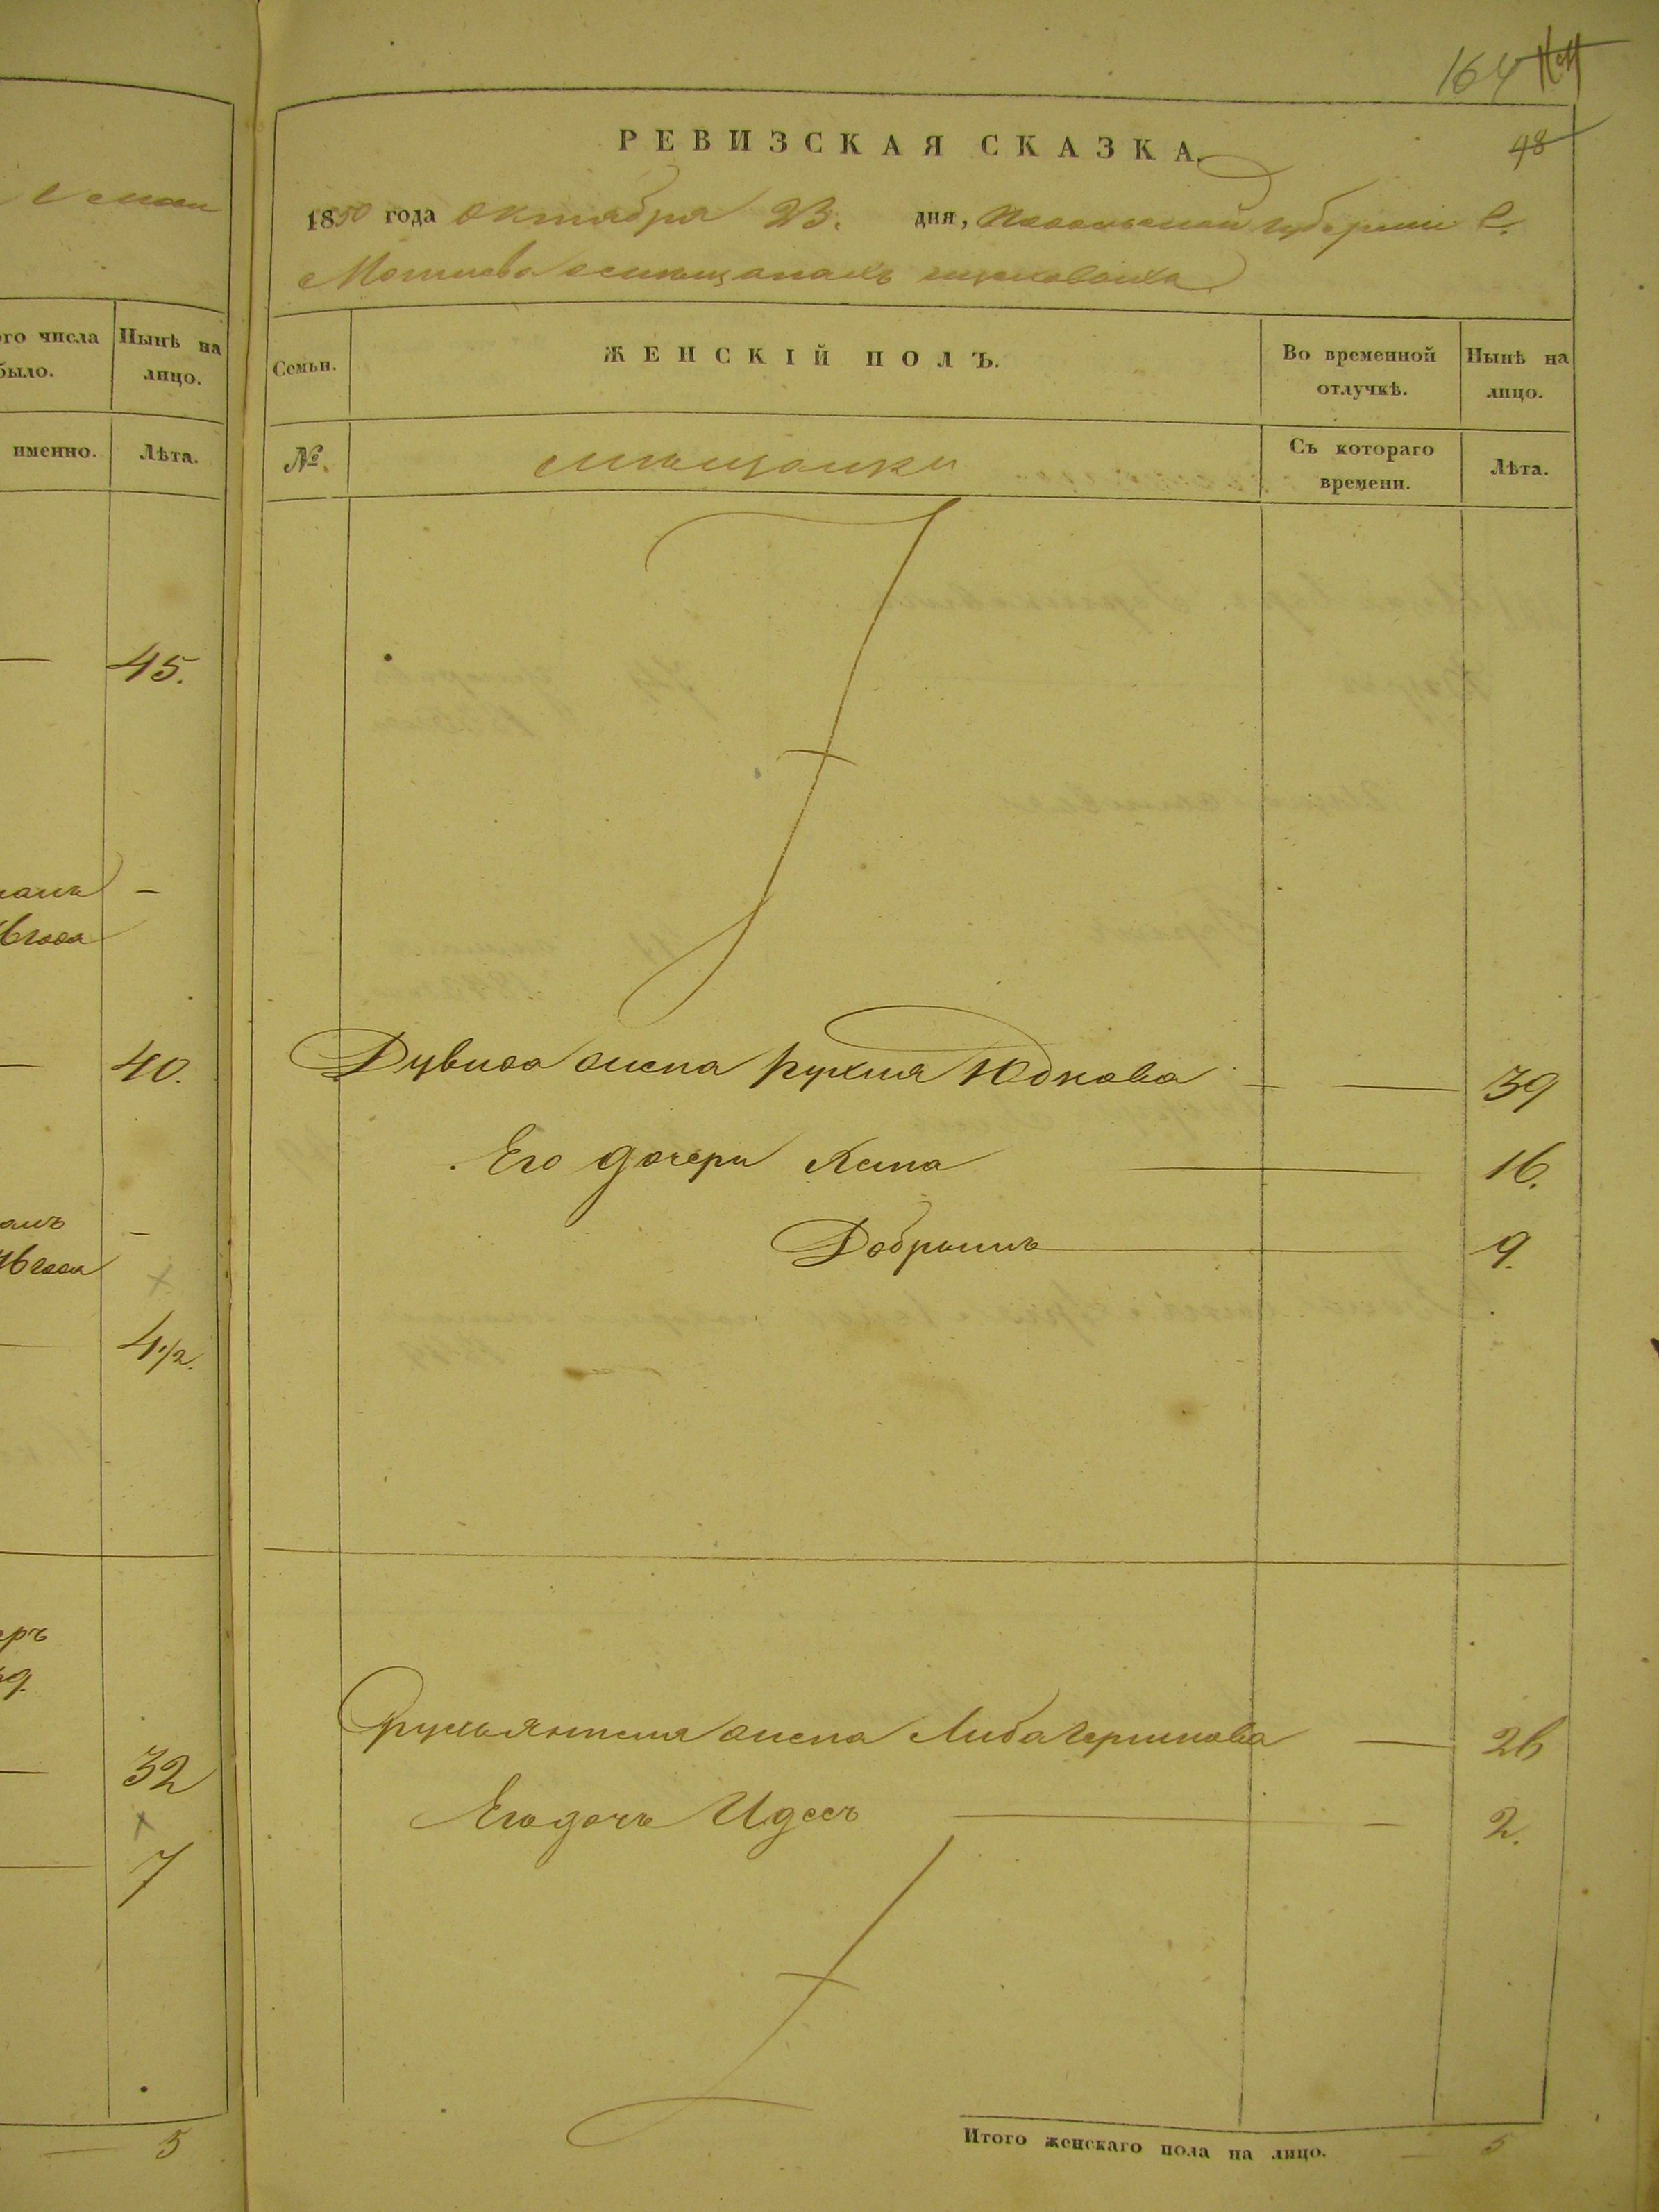 164
48
РЕВИЗСКАЯ СКАЗКА.
1850 года Октября 23. дня, Подольской губернии Г.
Могилева о мещанахъ
го числа
было.
Нынѣ на
лицо.
именно.
Лѣта.
Семьи.
ЖЕНСКІЙ ПОЛЪ.
Во временной
отлучкѣ.
Нынѣ на
лицо.
№.
мѣщанки
Съ котораго
времени.
Лѣта.
45.
40.
4 1/2.
32
7
5
Дувида жена Рухля Юдкова — 39
Его дочери Хана — 16.
Добрышъ — 9.
жена Либа Гершкова — 26
Его дочь Идесъ — 2.
Итого женскаго пола на лицо. — 5